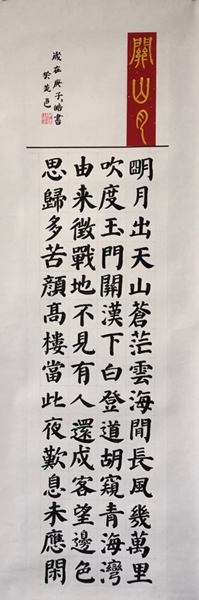 關山月
明月出天山蒼茫雲海間長風幾萬里
吹度玉門關漢下白登道胡窺青海灣
由来徵戰地不見有人還戍客望邊色
思歸多苦顏髙樓當此夜歎息未應閑
歲在庚子皓書
於芝邑